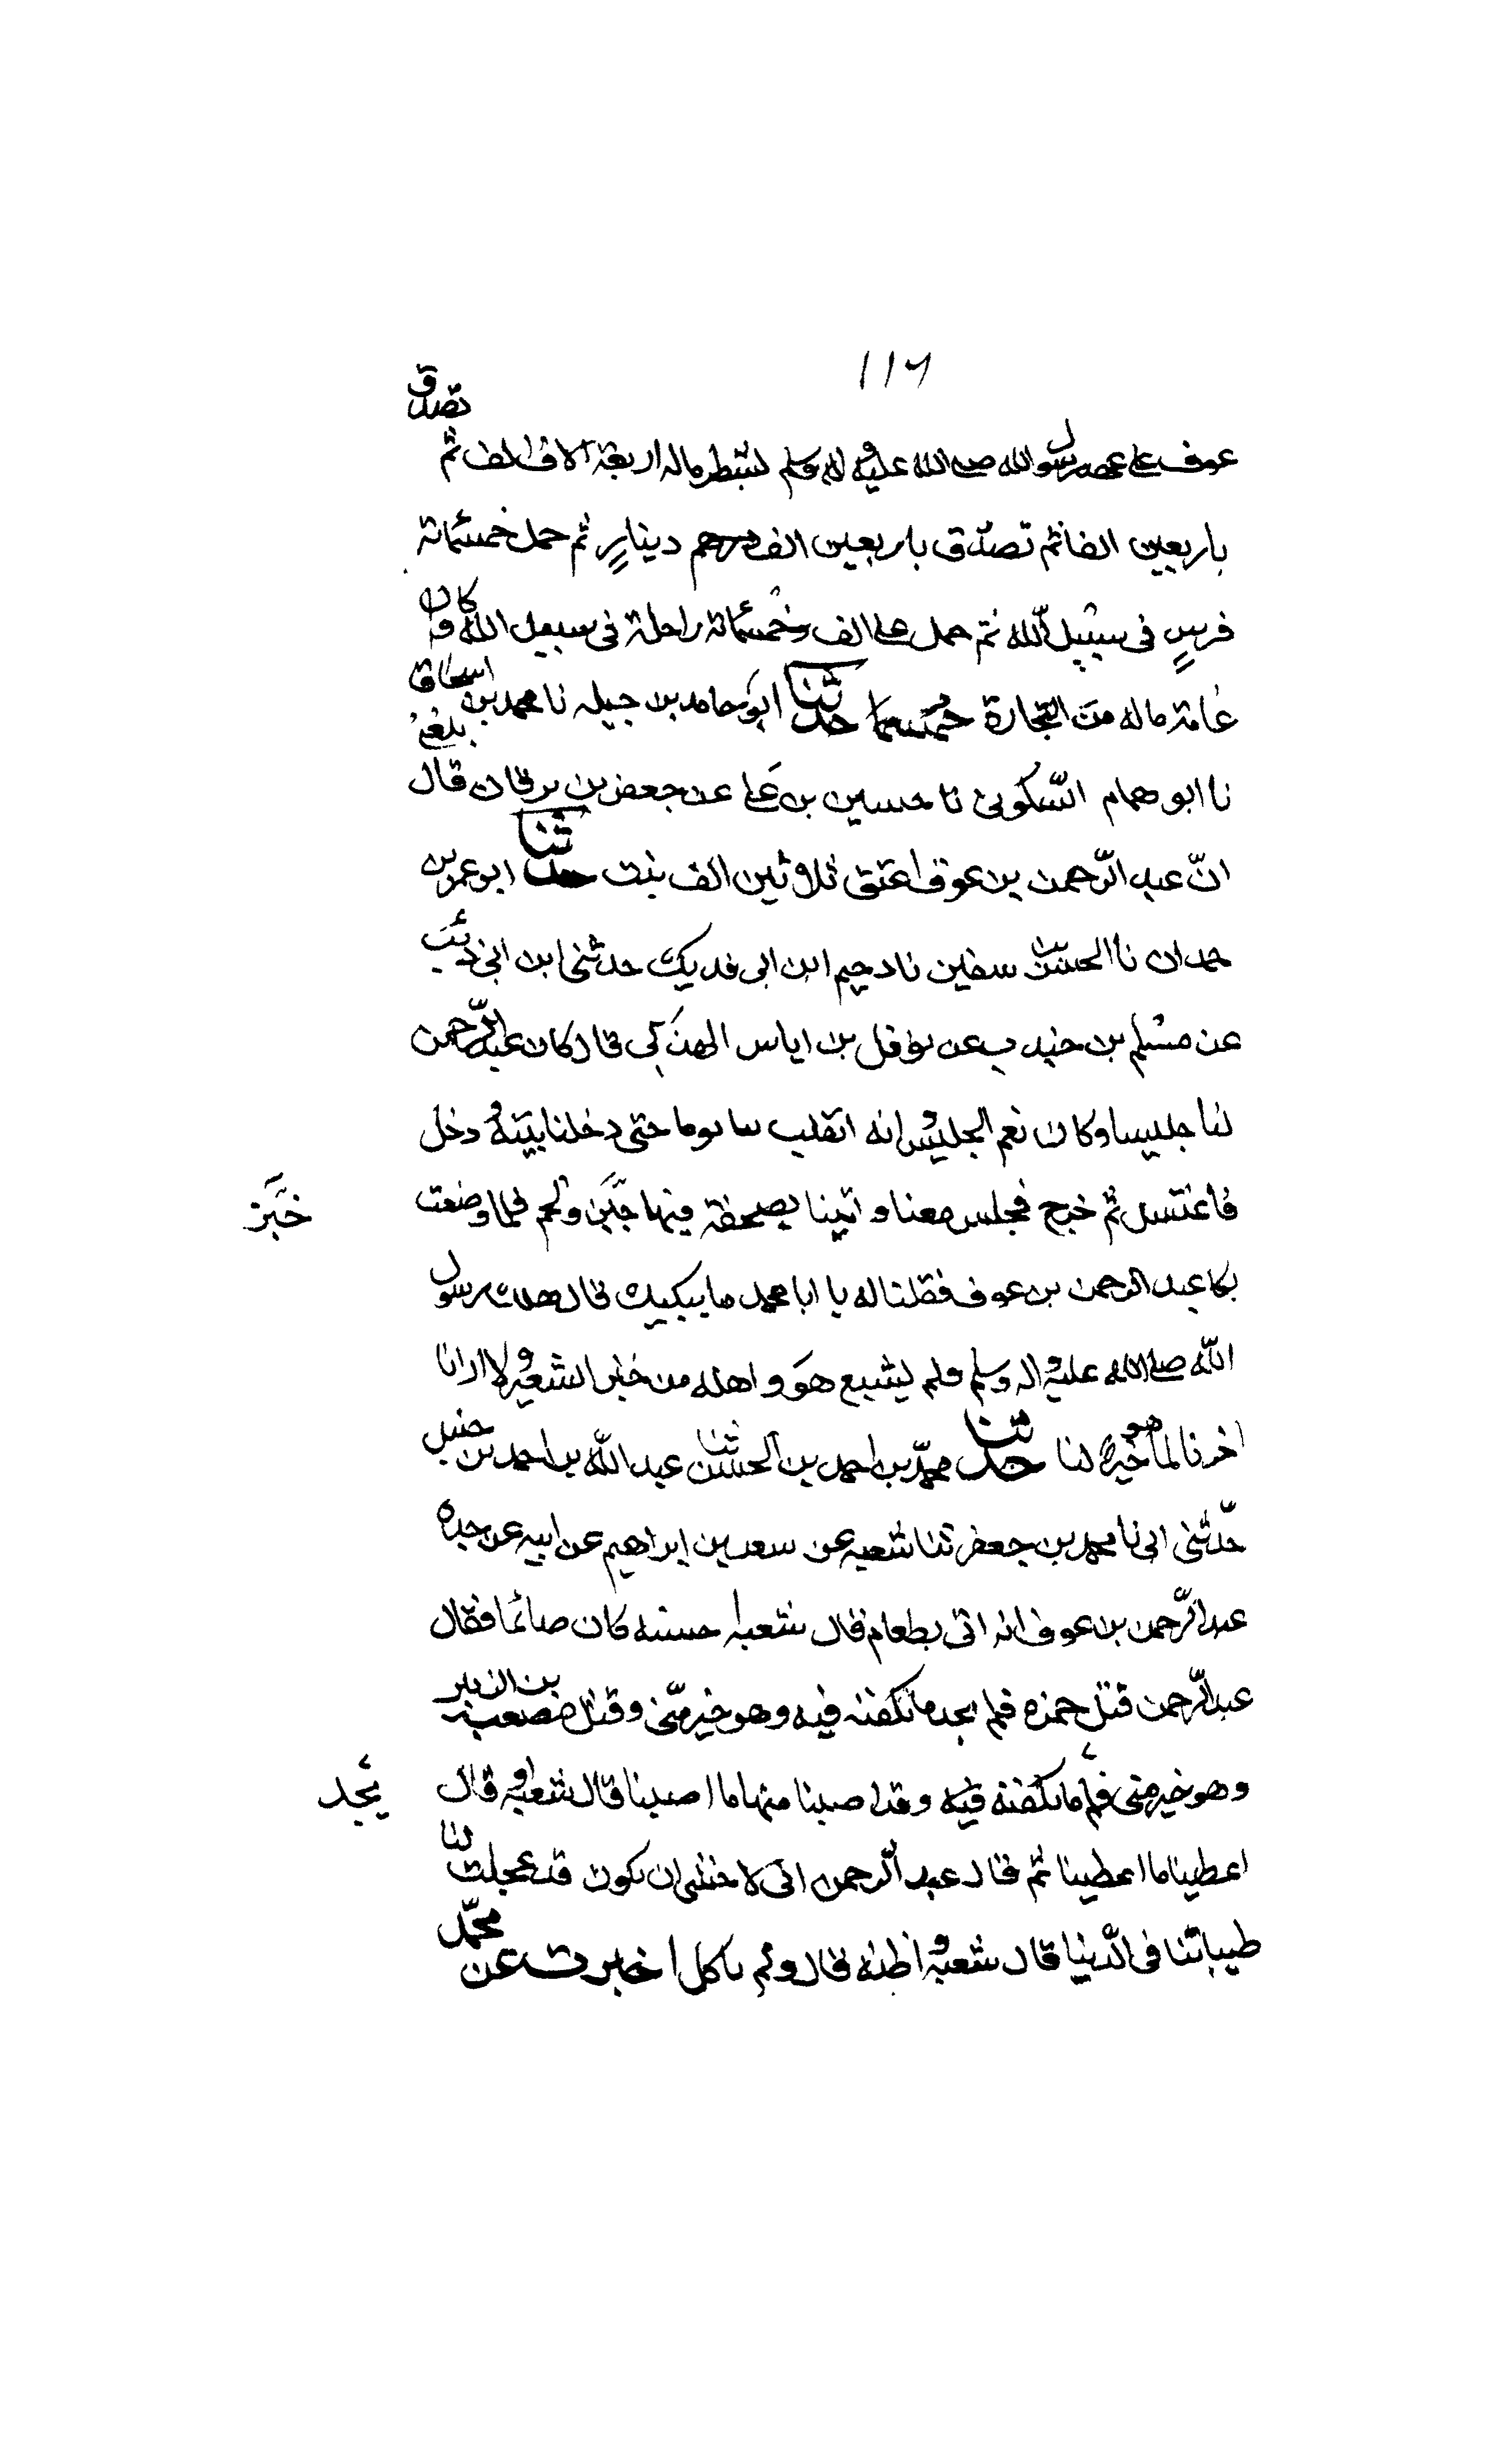 ١١٦
عوف على عهد رسول الله صلى الله عليه واله وسلم بشطر ماله اربعة الاف الف ثم تصدق
باربعين الفا ثم تصدّق باربعين الف درهم دينارٍ ثم حمل خمسمائة
فرسٍ فى سبيل الله ثم حمل على الف وخمسمائة راحلة فى سبيل الله وكان
عامة ماله من التجارة حدثنا ابو حامد بن جبله نا محمد بن اسحاق
نا ابو همام السّكونى نا حسين بن على عن جعفر بن برقان قال بلغنى
انّ عبد الرّحمن بن عوف اعتق ثلاثين الف بنت حدثنا ابو عمرو بن
حمدان نا الحسن بن سفين نا دحيم ابن ابى فديك حدثنى ابن ابى ذئب
عن مسلم بن جندب عن نوفل بن اياس الهذلى قال كان عبد الرّحمن
لنا جليسا وكان نعم الجليس وانه انقلب بنا يوما حتى دخلنا بيته ودخل
فاغتسل ثم خرج فجلس معنا واتينا بصحفة فيها خبز ولحم فلما وضعت
خبز
بكا عبد الرحمن بن عوف فقلنا له يا ابا محمد ما يبكيك قال هلك رسول
الله صلى الله عليه واله وسلم ولم يشبع هو واهله من خبز الشعير ولا ارانا
اخرنا لما هو خير لنا حدثنا محمّد بن احمد بن الحسن ثنا عبد الله بن احمد بن حنبل
حدّثنى ابى نا محمد بن جعفر ثنا شعبه عن سعد بن ابراهيم عن ابيه عن جده
عبد الرّحمن بن عوف انه اتى بطعام قال شعبه احسبه كان صائما فقال
عبد الرّحمن قتل حمزه فلم نجد ما نكفنه فيه وهو خير منّى وقتل مصعب بن الزبير
وهو خير منى فلم ما نكفنه فيه وقد اصبنا منها ما اصبنا قال شعبه او قال
نجد
اعطينا ما اعطينا ثم قال عبد الرّحمن انى لاخشى ان يكون قد عجلت لنا
طيباتنا فى الدّنيا قال شعبه واظنه قال ولم ياكل اخبرت عن محمّد